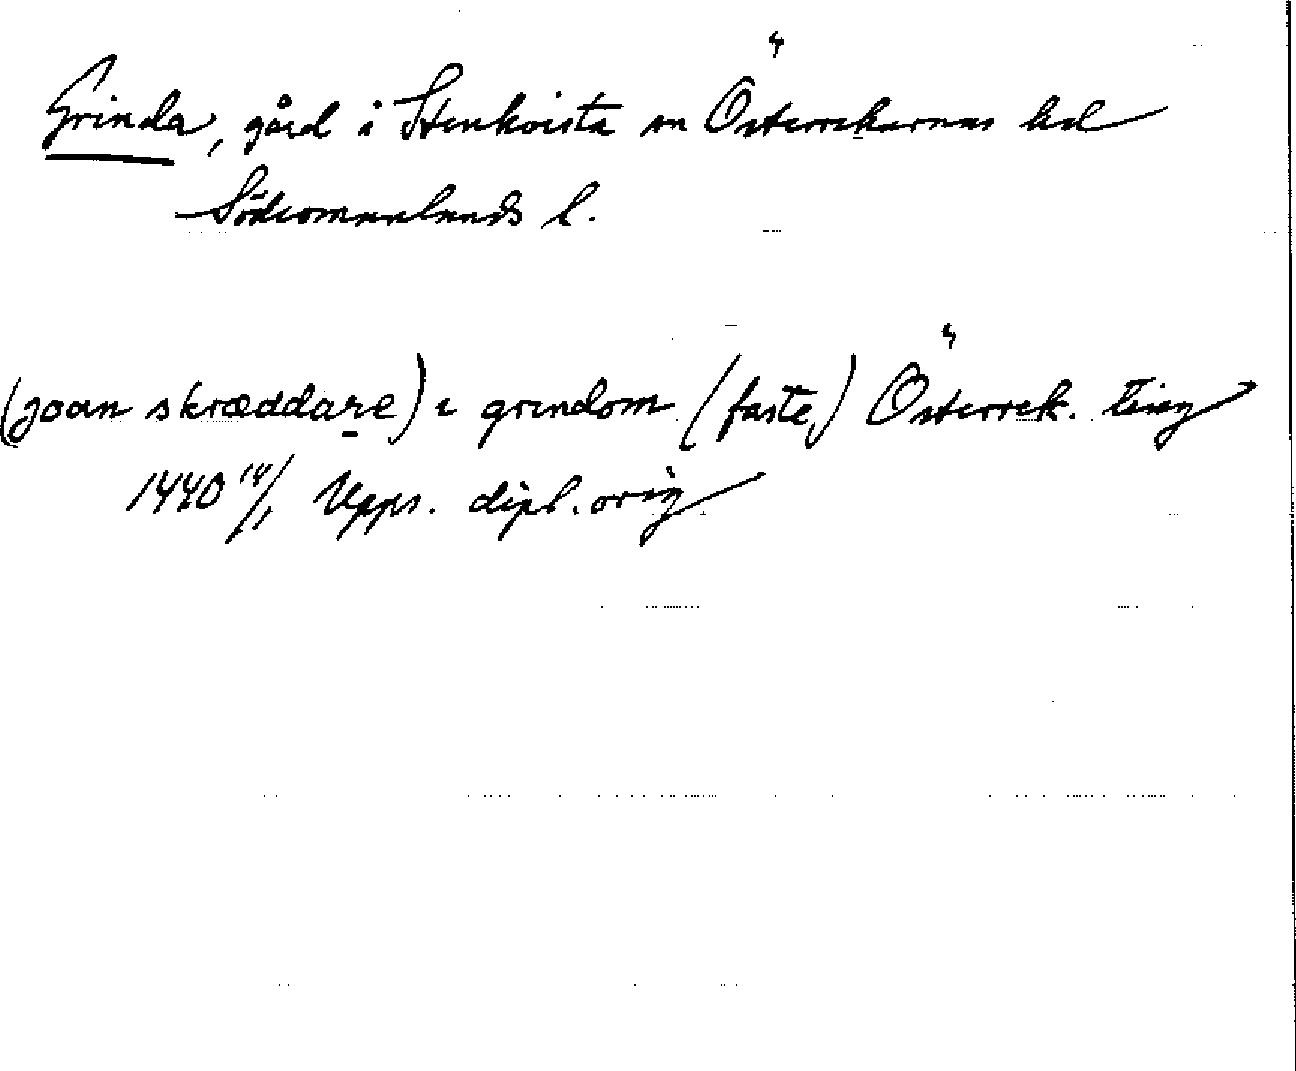 Grinda, gård i Stenkvista sn Österrekarnas hd
Södermanlands l.
(joan skræddare) i grindom (faste) Österrek. ting
1440 14/1 Upps. dipl. orig